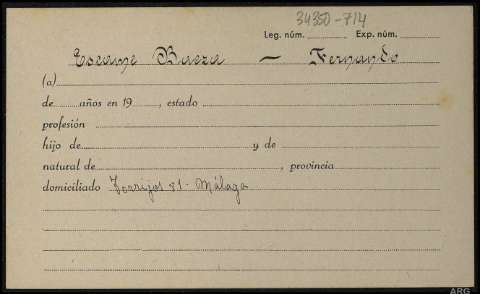 34350-714
Leg. núm. Exp. núm.
Escamé Baeza — Fernando
(a)
de años en 19 , estado
profesión
hijo de y de
natural de , provincia
domiciliado Torrijos 81- Málaga
ARG